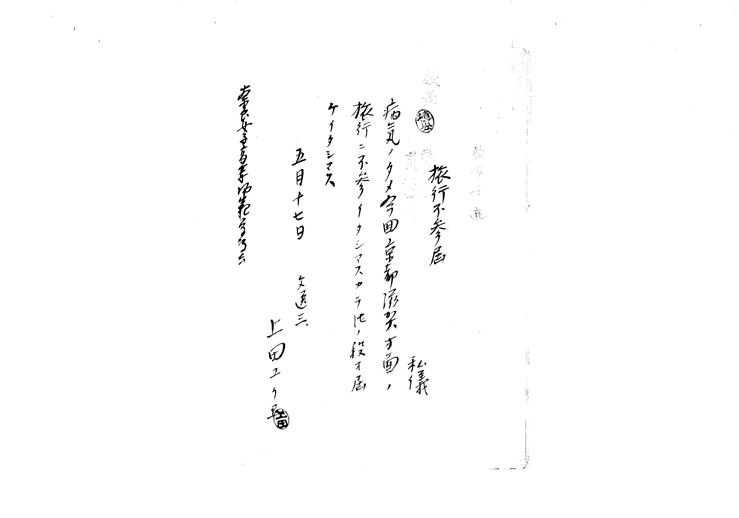 旅行不参届
私儀
病気ノタメ今回京都滋賀方面ノ
旅行ニ不参イタシマスカラ此ノ段御届
ケイタシマス
五月十七日
文選三
上田ユク
奈良女子高等師範学校
上田